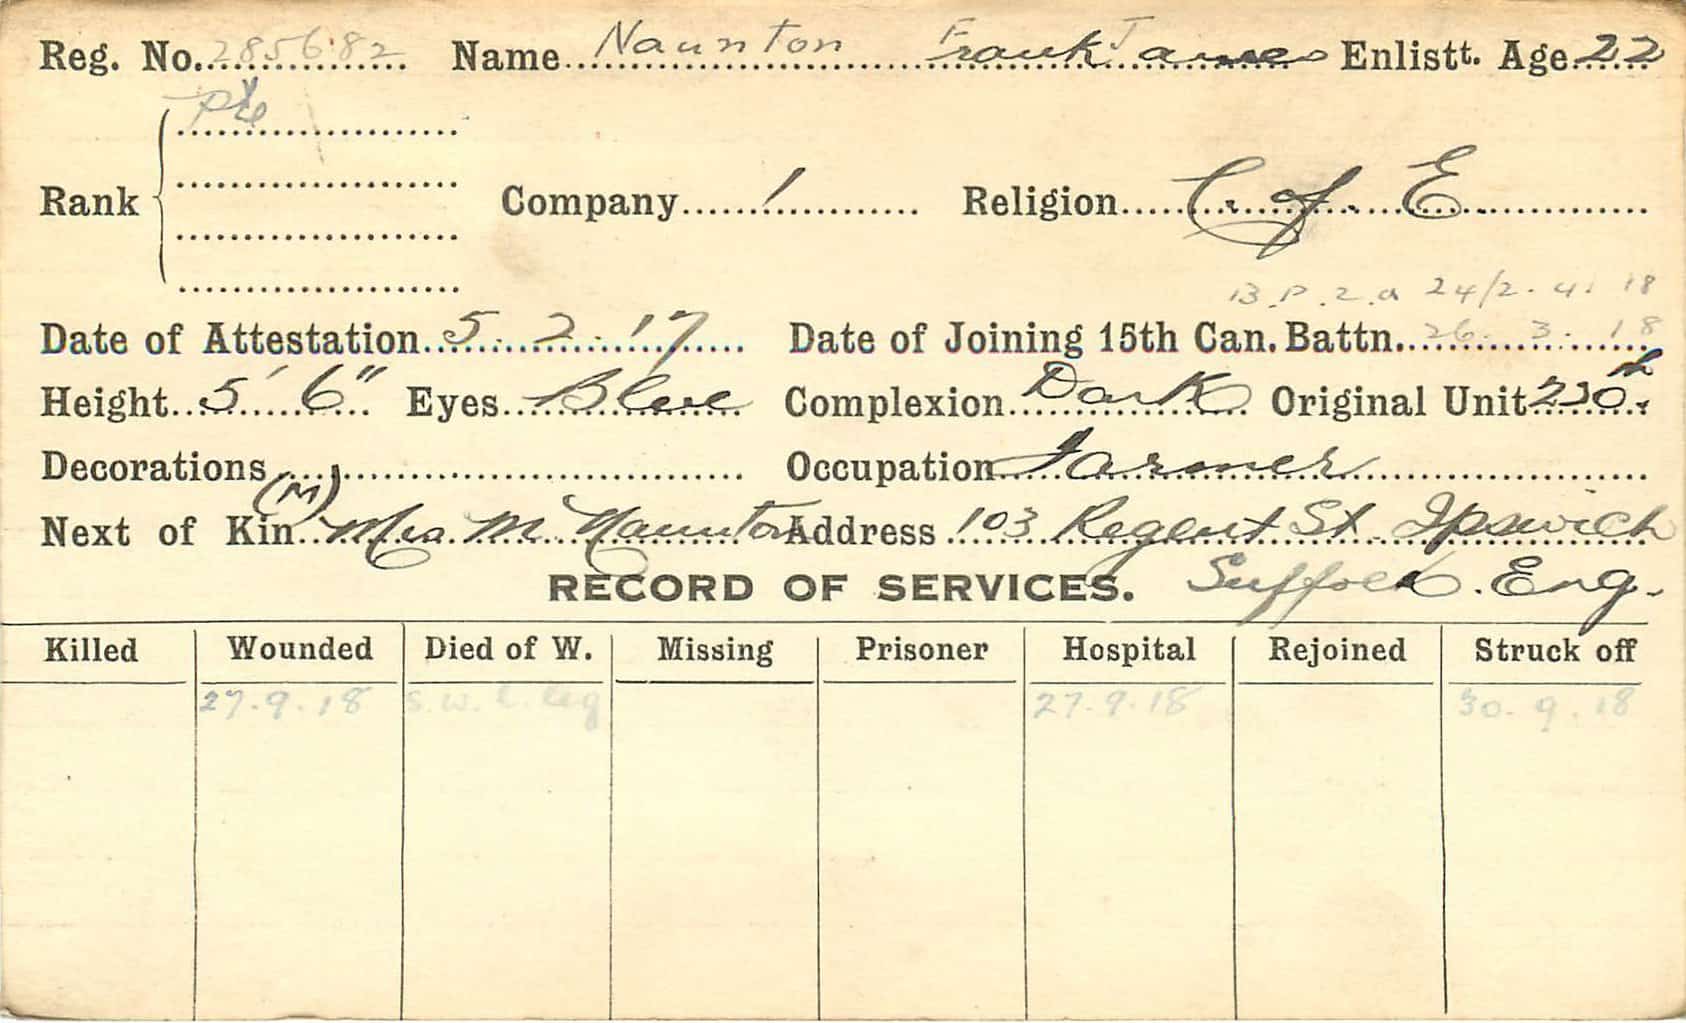 Reg. No. 285682 Name Naunton Frank James Enlistt. Age 22
Pte
Rank Company 1 Religion C. of. E.
B.P.2.a 24/2. 4. 18
Date of Attestation 5.2.17 Date of Joining 15th Can. Battn. 26.3.18
Height 5' 6" Eyes Blue Complexion Dark Original Unit 230th
Decorations Occupation Farmer
(M)
Next of Kin Mrs. M. Naunton Address 103 Regent St. Ipswich
RECORD OF SERVICES. Suffolk. Eng.
Killed Wounded Died of W. Missing Prisoner Hospital Rejoined Struck off
27.9.18 S.W. L. Leg 27.9.18 30.9.18